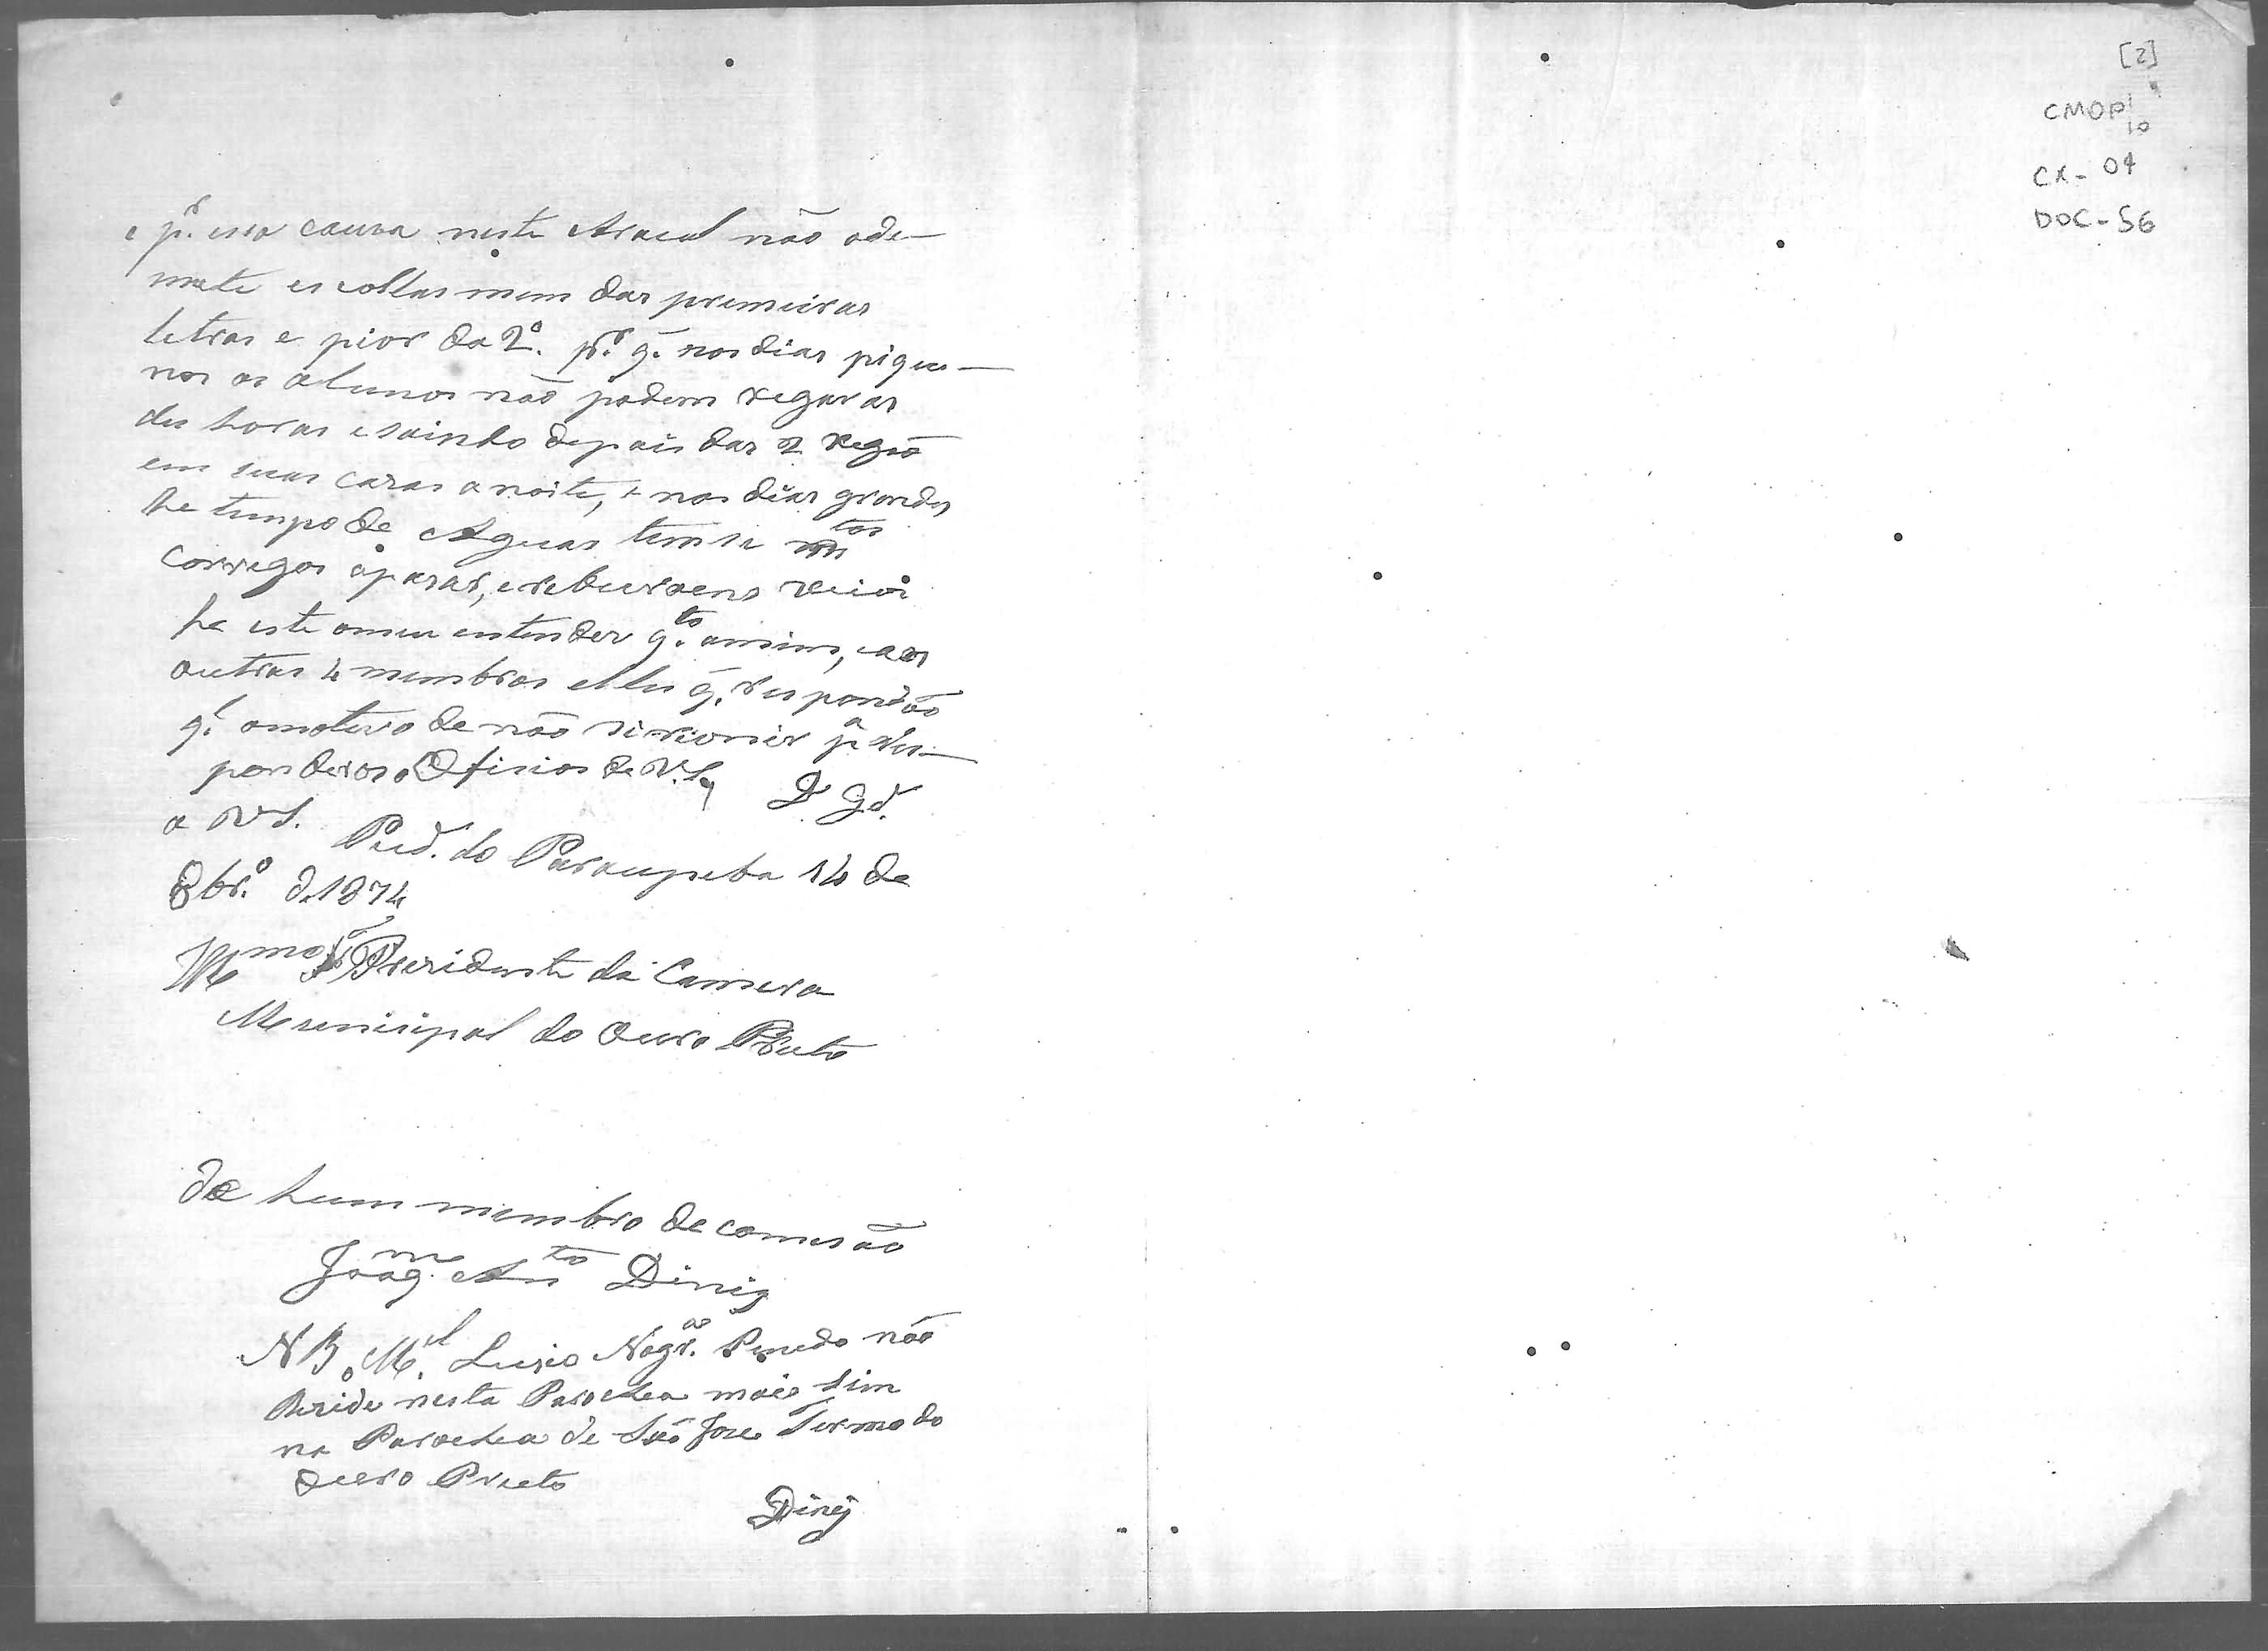 e p.r essa cauza neste Araial não ade-
mite escollas nem das premeiras
letras e pior da 2.a p.r q. nos dias pique-
nos os alunos não podem xegar as
des horas e saindo depois das 2 xegão
em suas cazas a noite, e nos dias grandes
he tempo de Agoas tem se m.tos
Corregos apasar, e
he este omeu entender q.to amim, e aos
outros 4 membros elles q. respondão
q.l omotivo de não si riunir p.a res-
ponder os Ofisios de V.S.a D. G.d
a V S. Pied.e do Paraupeba 14 de
8br.o d. 1874
Ill.mo Snr Prezidente da Camera
Munisipal do Ouro Preto
De hum membro de comisão
Joaq.m An.to Diniz
NB. M.el Lusio Nogr.a Penedo não
Rezide nesta Parochea mais sim
na Parochea de São Joze Termo do
Ouro Preto
Diniz
[2]
CMOP
10
CX- 04
DOC-56